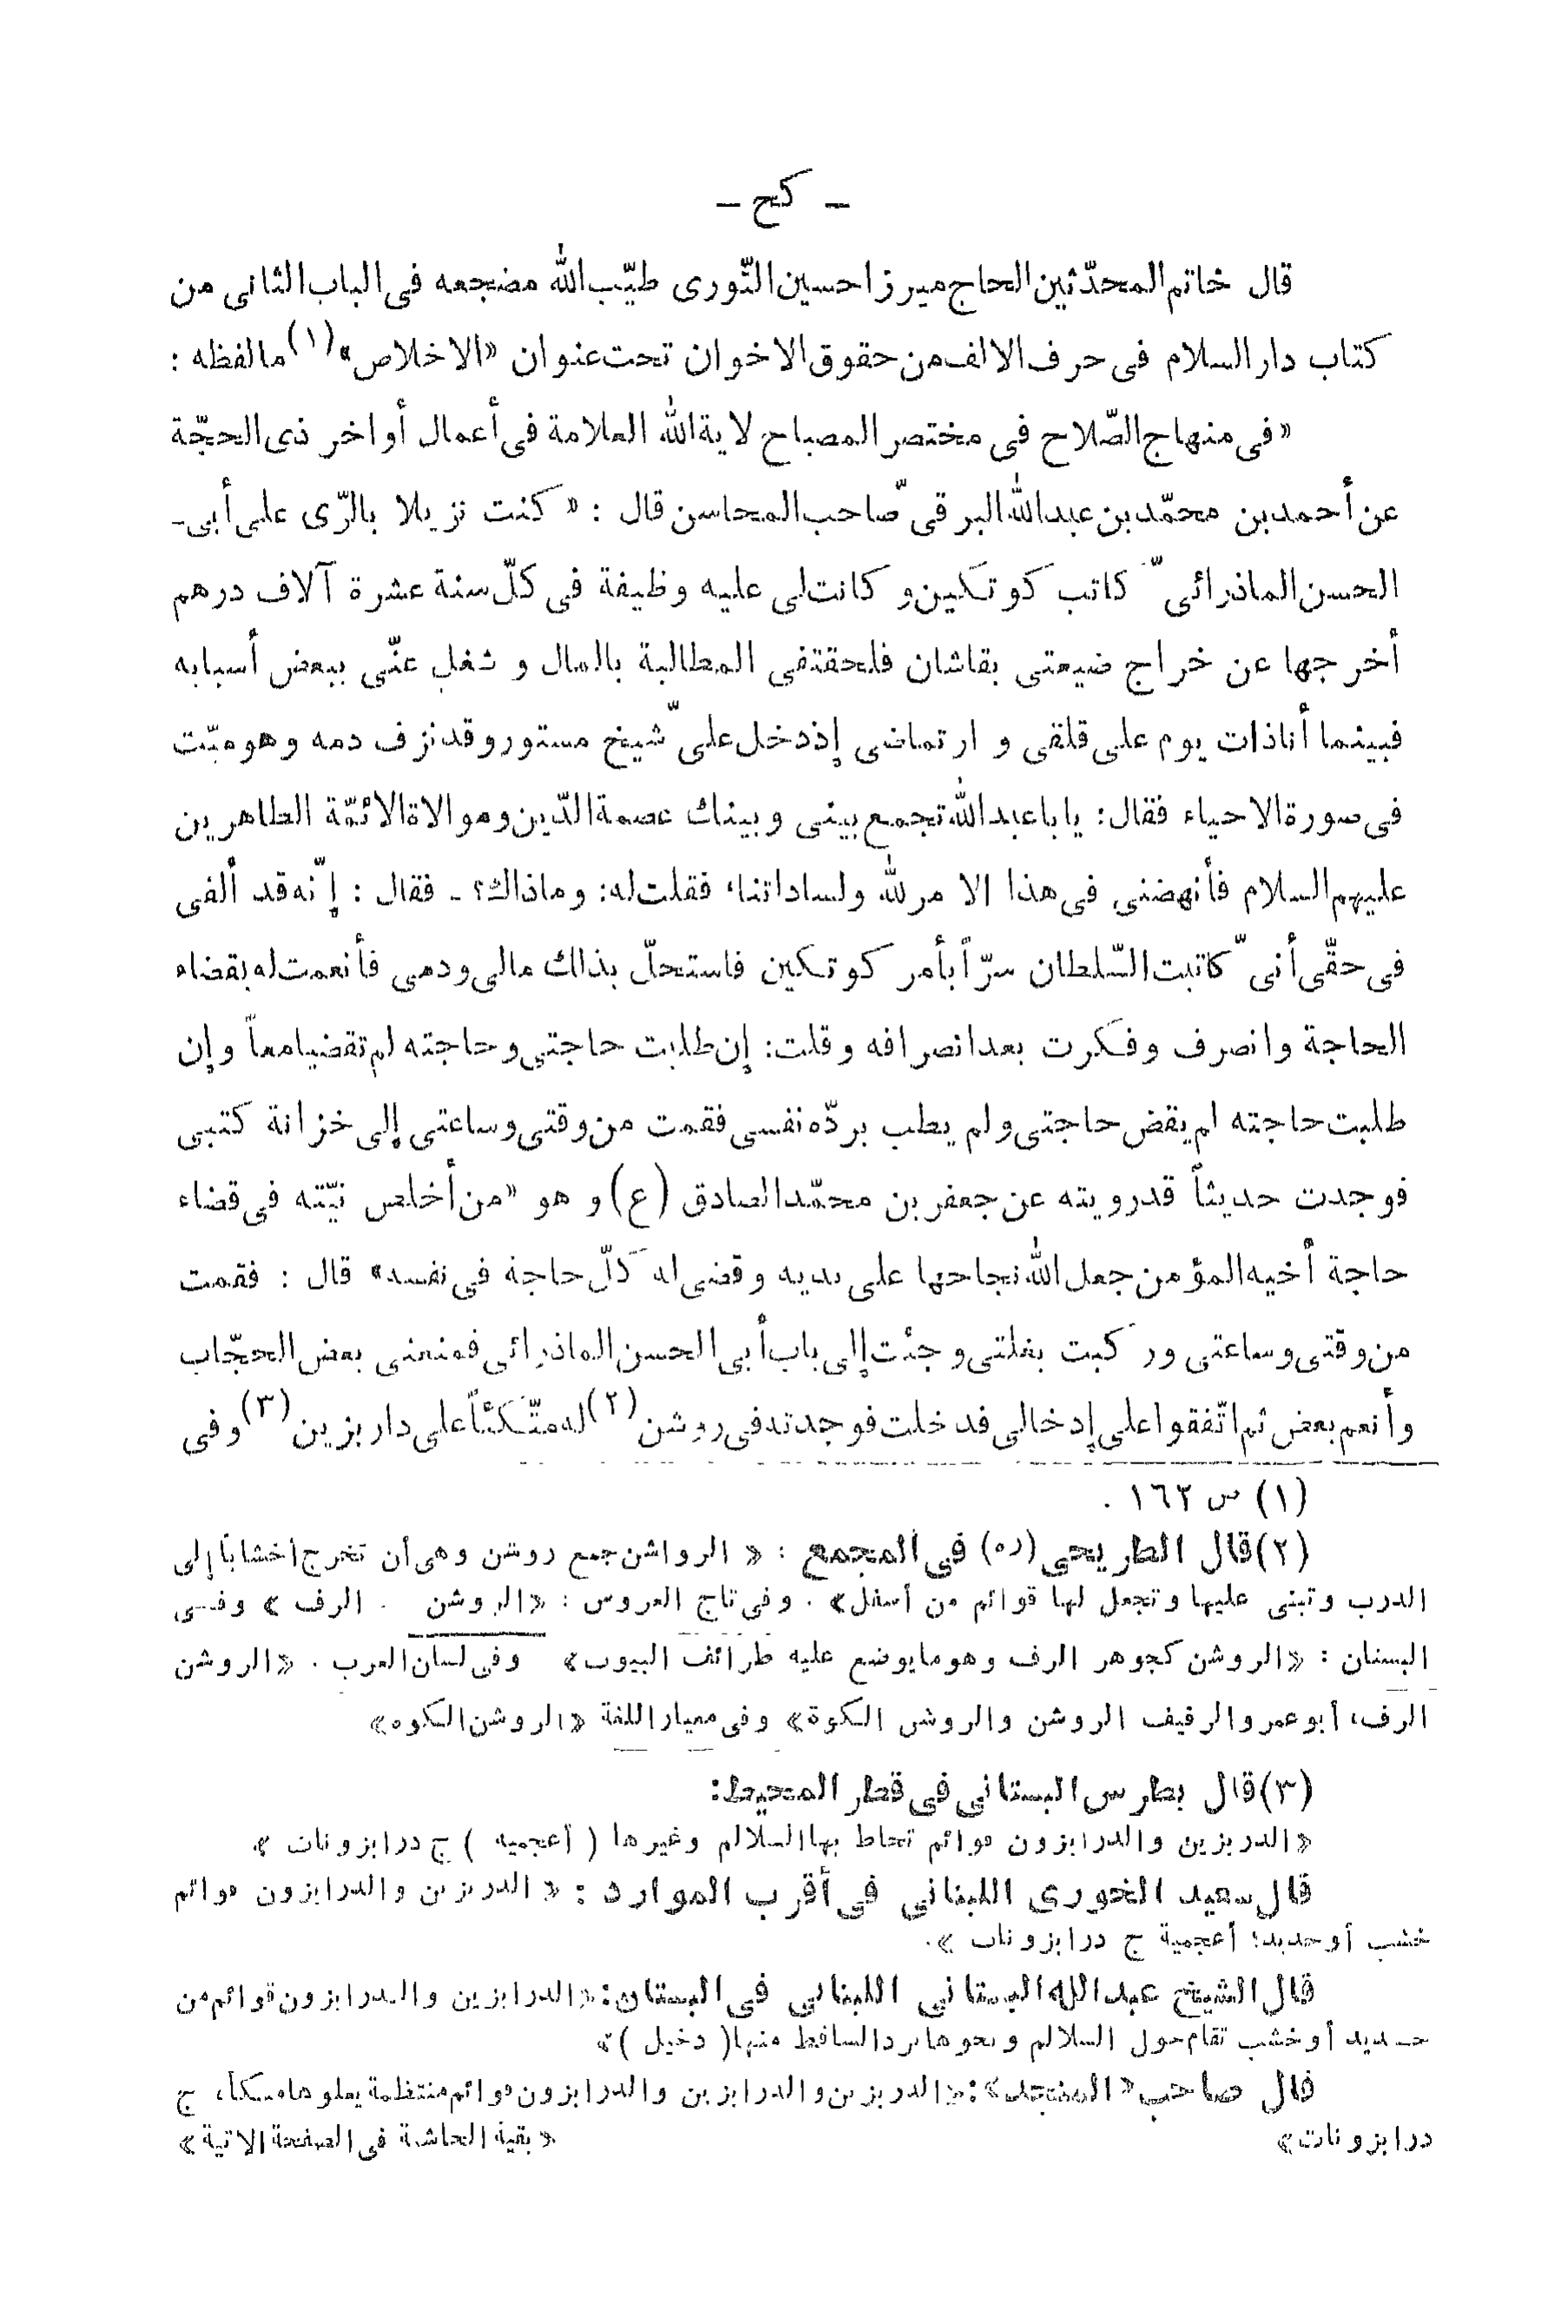 - كح -
قال خاتم المحدّثين الحاج ميرزا حسين النّورى طيّب الله مضجعه فى الباب الثانى من
كتاب دار السلام فى حرف الالف من حقوق الاخوان تحت عنوان «الاخلاص»(١) ما لفظه :
«فى منهاج الصّلاح فى مختصر المصباح لاية الله العلامة فى أعمال أواخر ذى الحجّة
عن أحمد بن محمّد بن عبدالله البرقىّ صاحب المحاسن قال : «كنت نزيلا بالرّى على أبى-
الحسن الماذرائىّ كاتب كوتكين و كانت لى عليه وظيفة فى كلّ سنة عشرة آلاف درهم
أخرجها عن خراج ضيعتى بقاشان فلحقتفى المطالبة بالمال و شغل عنّى ببعض أسبابه
فبينما أنا ذات يوم على قلقى و ارتماضى إذ دخل علىّ شيخ مستور و قد نزف دمه و هو ميّت
فى صورة الاحياء فقال: يا با عبدالله تجمع بينى و بينك عصمة الدّين و موالاة الائمّة الطاهرين
عليهم السلام فأنهضنى فى هذا الامر لله ولساداتنا، فقلت له: وماذاك؟ - فقال : إنّه قد ألفى
فى حقّى أنىّ كاتبت السّلطان سرّاً بأمر كوتكين فاستحلّ بذلك مالى و دمى فأنعمت له بقضاء
الحاجة وانصرف وفكرت بعد انصرافه وقلت: إن طلبت حاجتى و حاجته لم تقضيا معاً وإن
طلبت حاجته لم يقض حاجتى و لم يطب بردّه نفسى فقمت من وقتى و ساعتى إلى خزانة كتبى
فوجدت حديثاً قد رويته عن جعفر بن محمّد الصادق (ع) و هو «من أخلص نيّته فى قضاء
حاجة أخيه المؤمن جعل الله نجاحها على يديه و قضى له كلّ حاجة فى نفسه» قال : فقمت
من وقتى و ساعتى و ركبت بغلتى و جئت إلى باب أبى الحسن الماذرائى فمنعنى بعض الحجّاب
وأنعم بعض ثم اتّفقوا على إدخالى فدخلت فوجدته فى روشن(٢) له متّكئاً على داربزين(٣) وفى
(١) ص ١٦٢ .
(٢) قال الطريحى (ره) فى المجمع : « الرواشن جمع روشن وهى أن تخرج أخشاباً إلى
الدرب وتبنى عليها وتجعل لها قوائم من أسفل» . وفى تاج العروس : «الروشن . الرف » وفى
البستان : «الروشن كجوهر الرف وهو ما يوضع عليه طرائف البيوت» وفى لسان العرب . «الروشن
الرف، أبو عمرو الرفيف الروشن والروشن الكوة» وفى معيار اللغة «الروشن الكوه»
(٣) قال بطرس البستانى فى قطر المحيط:
«الدربزين والدرابزون قوائم تحاط بها السلالم وغيرها (أعجمية) ج درابزونات».
قال سعيد الخورى اللبنانى فى أقرب الموارد : « الدربزين والدرابزون قوائم
خشب أو حديد؛ أعجمية ج درابزونات ».
قال الشيخ عبدالله البستانى اللبنانى فى البستان: «الدرابزين والدرابزون قوائم من
حديد أو خشب تقام حول السلالم ونحوها ترد الساقط منها (دخيل)»
قال صاحب «المنجد»: «الدربزين والدرابزين والدرابزون قوائم منتظمة يعلوها متكأ، ج
درابزونات» «بقية الحاشية فى الصفحة الاتية»